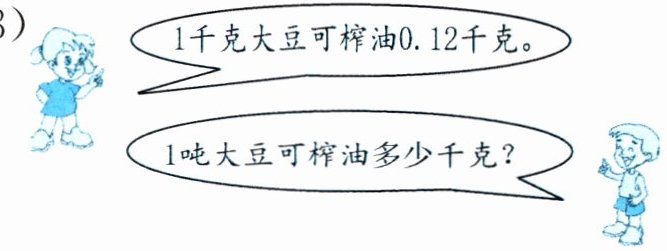 3)
1千克大豆可榨油0.12千克。
1吨大豆可榨油多少千克？